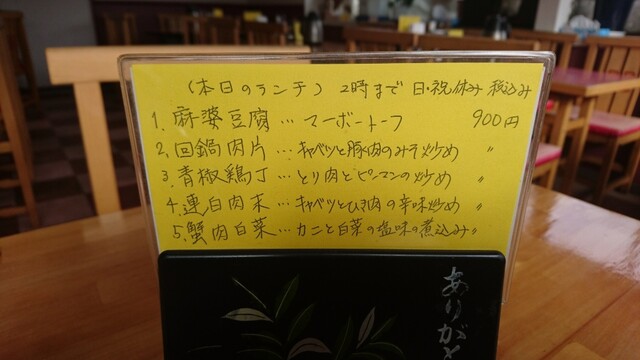 (本日のランチ) 2時まで 日・祝休み 税込み
1. 麻婆豆腐 … マーボートーフ 900円
2. 回鍋肉片 … キャベツと豚肉のみそ炒め 〃
3. 青椒鶏丁 … とり肉とピーマンの炒め 〃
4. 連白肉末 … キャベツとひき肉の辛味炒め 〃
5. 蟹肉白菜 … カニと白菜の塩味の煮込み 〃
ありがと